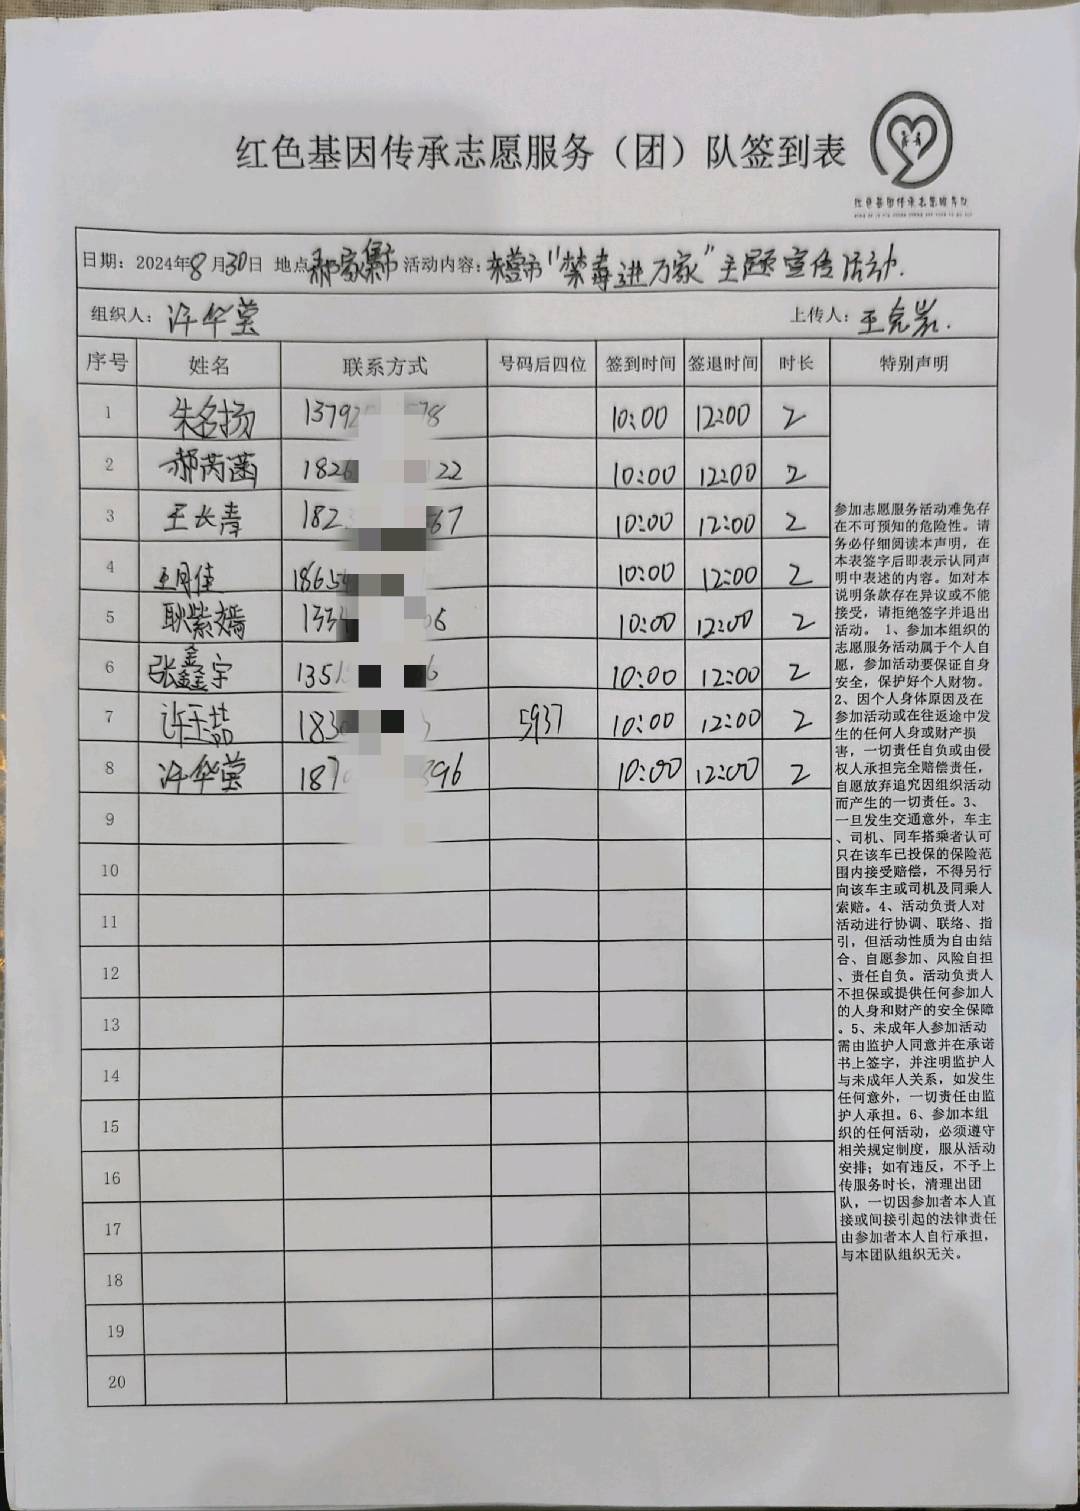 红色基因传承志愿服务（团）队签到表
红色基因传承志愿服务队
日期：2024年8月30日 地点 郝家集市 活动内容：东营市“禁毒进万家”主题宣传活动.
组织人：许华莹 上传人：王克岩.
序号 姓名 联系方式 号码后四位 签到时间 签退时间 时长 特别声明
1 朱名扬 1379 78 10:00 12:00 2
2 郝芮菡 1826 122 10:00 12:00 2
3 王长青 182 67 10:00 12:00 2
4 王月佳 1865 10:00 12:00 2
5 耿紫嫣 133 6 10:00 12:00 2
6 张鑫宇 1351 6 10:00 12:00 2
7 许玉喆 183 5937 10:00 12:00 2
8 许华莹 187 396 10:00 12:00 2
9
10
11
12
13
14
15
16
17
18
19
20
参加志愿服务活动难免存
在不可预知的危险性。请
务必仔细阅读本声明，在
本表签字后即表示认同声
明中表述的内容。如对本
说明条款存在异议或不能
接受，请拒绝签字并退出
活动。 1、参加本组织的
志愿服务活动属于个人自
愿，参加活动要保证自身
安全，保护好个人财物。
2、因个人身体原因及在
参加活动或在往返途中发
生的任何人身或财产损
害，一切责任自负或由侵
权人承担完全赔偿责任，
自愿放弃追究因组织活动
而产生的一切责任。3、
一旦发生交通意外，车主
、司机、同车搭乘者认可
只在该车已投保的保险范
围内接受赔偿，不得另行
向该车主或司机及同乘人
索赔。4、活动负责人对
活动进行协调、联络、指
引，但活动性质为自由结
合、自愿参加、风险自担
、责任自负。活动负责人
不担保或提供任何参加人
的人身和财产的安全保障
。5、未成年人参加活动
需由监护人同意并在承诺
书上签字，并注明监护人
与未成年人关系，如发生
任何意外，一切责任由监
护人承担。6、参加本组
织的任何活动，必须遵守
相关规定制度，服从活动
安排；如有违反，不予上
传服务时长，清理出团
队，一切因参加者本人直
接或间接引起的法律责任
由参加者本人自行承担，
与本团队组织无关。